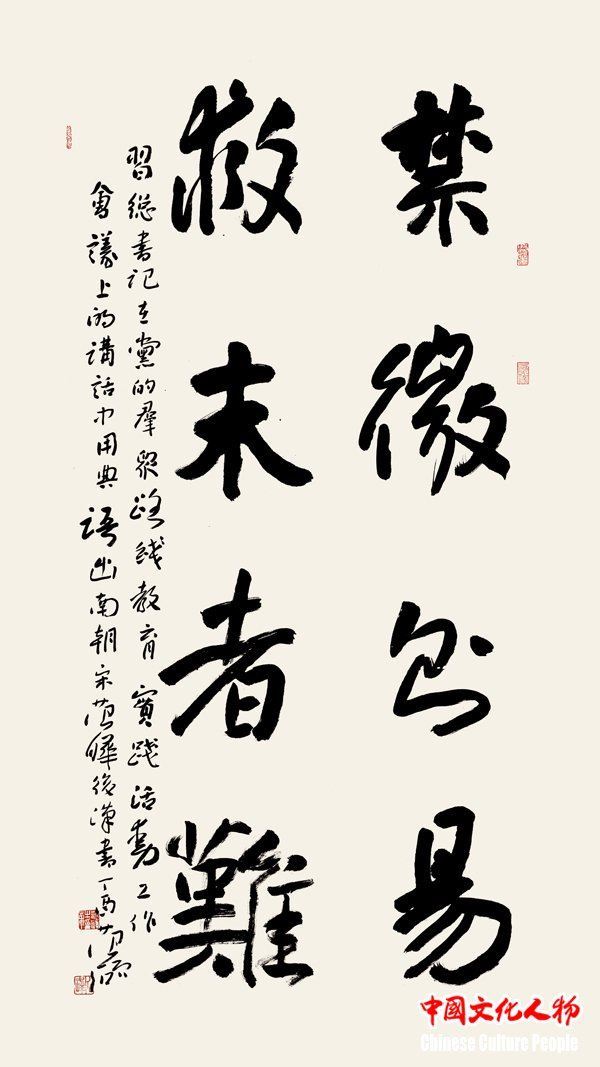 禁微則易
救末者難
習總書記在黨的羣眾路綫教育實踐活動工作
會議上的講話中用典語出南朝宋范曄後漢書丁酉
中國文化人物
Chinese Culture People